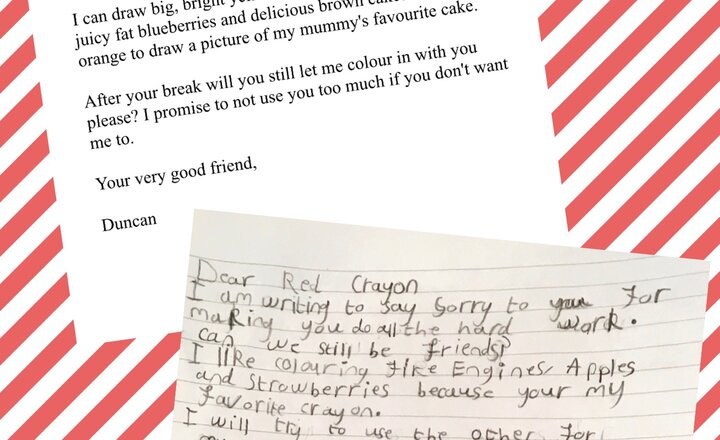 I can draw big, bright
juicy fat blueberries and delicious brown
orange to draw a picture of my mummy's favourite cake.
After your break will you still let me colour in with you
please? I promise to not use you too much if you don't want
me to.
Your very good friend,
Duncan
Dear Red Crayon
I am writing to say sorry to you for
making you do all the hard work.
can we still be friends?
I like colouring fire Engines, Apples
and strowberries because your my
favorite crayon.
I will try to use the other for